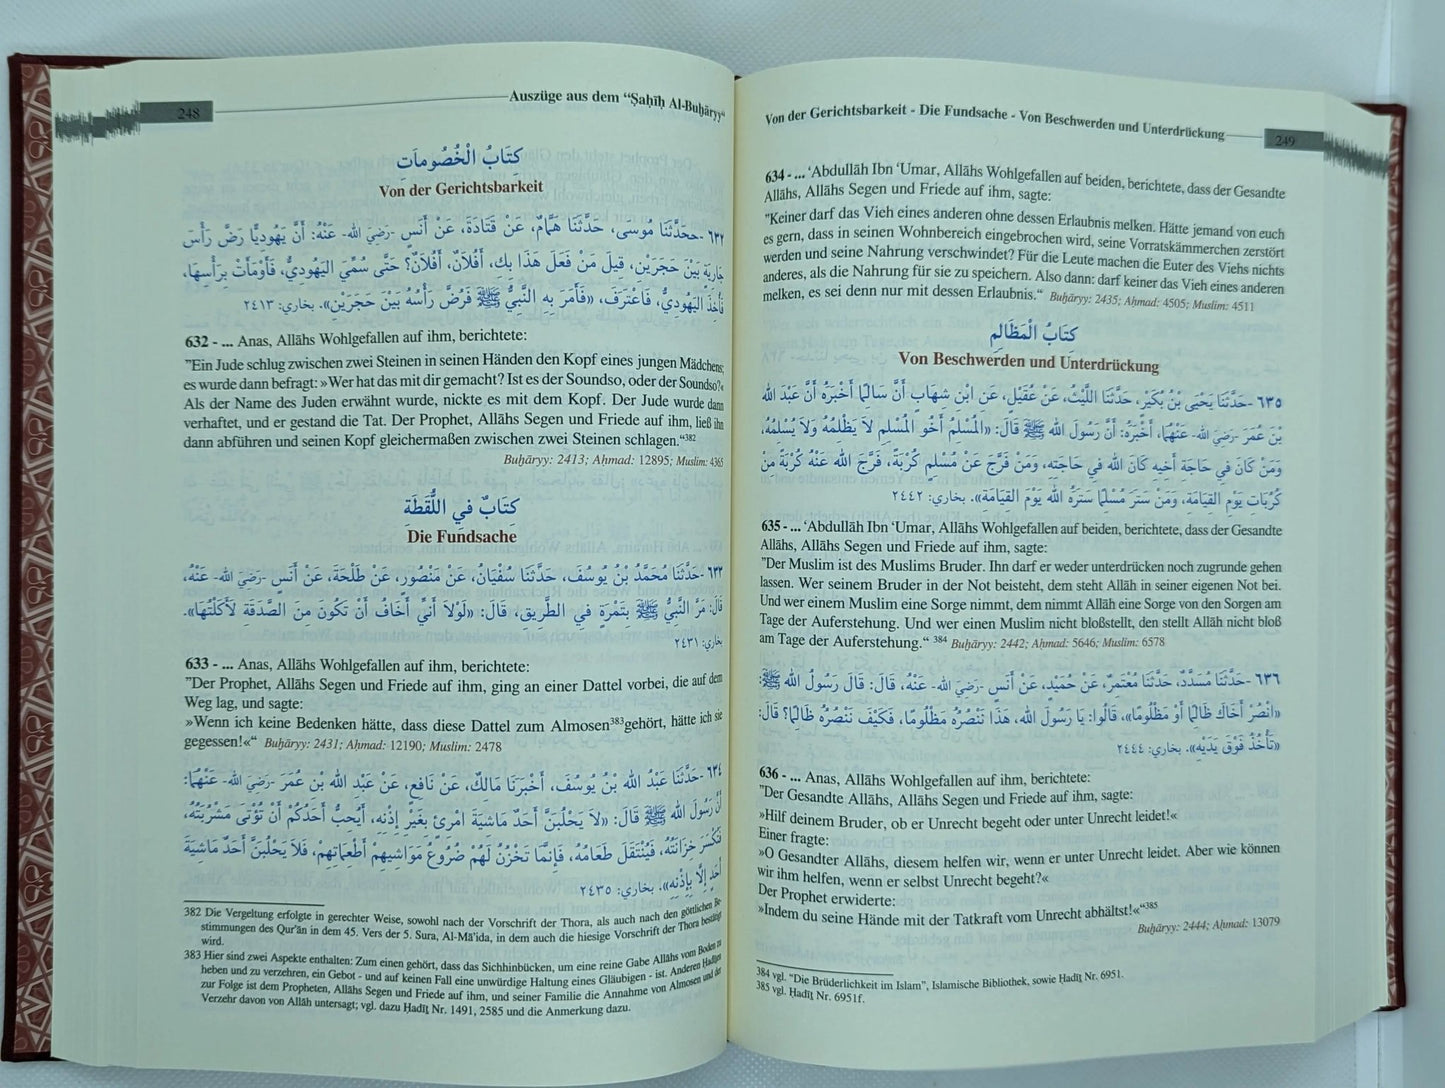 248
Auszüge aus dem “Ṣaḥīḥ Al-Buḫāryy“
كِتَابُ الْخُصُومَاتِ
Von der Gerichtsbarkeit
٦٣٢ -حَدَّثَنَا مُوسَى، حَدَّثَنَا هَمَّامٌ، عَنْ قَتَادَةَ، عَنْ أَنَسٍ -رَضِيَ الله- عَنْهُ: أَنَّ يَهُودِيًّا رَضَّ رَأْسَ
جَارِيَةٍ بَيْنَ حَجَرَيْنِ، قِيلَ مَنْ فَعَلَ هَذَا بِكِ، أَفُلاَنٌ، أَفُلاَنٌ؟ حَتَّى سُمِّيَ اليَهُودِيُّ، فَأَوْمَأَتْ بِرَأْسِهَا،
فَأُخِذَ اليَهُودِيُّ، فَاعْتَرَفَ، «فَأَمَرَ بِهِ النَّبِيُّ ﷺ فَرُضَّ رَأْسُهُ بَيْنَ حَجَرَيْنِ». بخاري: ٢٤١٣
632 - ... Anas, Allāhs Wohlgefallen auf ihm, berichtete:
"Ein Jude schlug zwischen zwei Steinen in seinen Händen den Kopf eines jungen Mädchens;
es wurde dann befragt: »Wer hat das mit dir gemacht? Ist es der Soundso, oder der Soundso?«
Als der Name des Juden erwähnt wurde, nickte es mit dem Kopf. Der Jude wurde dann
verhaftet, und er gestand die Tat. Der Prophet, Allāhs Segen und Friede auf ihm, ließ ihn
dann abführen und seinen Kopf gleichermaßen zwischen zwei Steinen schlagen.“382
Buḫāryy: 2413; Aḥmad: 12895; Muslim: 4365
كِتَابٌ فِي اللُّقَطَةِ
Die Fundsache
٦٣٣ -حَدَّثَنَا مُحَمَّدُ بْنُ يُوسُفَ، حَدَّثَنَا سُفْيَانُ، عَنْ مَنْصُورٍ، عَنْ طَلْحَةَ، عَنْ أَنَسٍ -رَضِيَ الله- عَنْهُ،
قَالَ: مَرَّ النَّبِيُّ ﷺ بِتَمْرَةٍ فِي الطَّرِيقِ، قَالَ: «لَوْلاَ أَنِّي أَخَافُ أَنْ تَكُونَ مِنَ الصَّدَقَةِ لَأَكَلْتُهَا».
بخاري: ٢٤٣١
633 - ... Anas, Allāhs Wohlgefallen auf ihm, berichtete:
"Der Prophet, Allāhs Segen und Friede auf ihm, ging an einer Dattel vorbei, die auf dem
Weg lag, und sagte:
»Wenn ich keine Bedenken hätte, dass diese Dattel zum Almosen383gehört, hätte ich sie
gegessen!«“ Buḫāryy: 2431; Aḥmad: 12190; Muslim: 2478
٦٣٤ -حَدَّثَنَا عَبْدُ الله بْنُ يُوسُفَ، أَخْبَرَنَا مَالِكٌ، عَنْ نَافِعٍ، عَنْ عَبْدِ الله بْنِ عُمَرَ -رَضِيَ الله- عَنْهُمَا:
أَنَّ رَسُولَ الله ﷺ قَالَ: «لاَ يَحْلُبَنَّ أَحَدٌ مَاشِيَةَ امْرِئٍ بِغَيْرِ إِذْنِهِ، أَيُحِبُّ أَحَدُكُمْ أَنْ تُؤْتَى مَشْرُبَتُهُ،
فَتُكْسَرَ خِزَانَتُهُ، فَيُنْتَقَلَ طَعَامُهُ، فَإِنَّمَا تَخْزُنُ لَهُمْ ضُرُوعُ مَوَاشِيهِمْ أَطْعِمَاتِهِمْ، فَلاَ يَحْلُبَنَّ أَحَدٌ مَاشِيَةَ
أَحَدٍ إِلَّا بِإِذْنِهِ». بخاري: ٢٤٣٥
382 Die Vergeltung erfolgte in gerechter Weise, sowohl nach der Vorschrift der Thora, als auch nach den göttlichen Be-
stimmungen des Qur’ān in dem 45. Vers der 5. Sura, Al-Mā’ida, in dem auch die hiesige Vorschrift der Thora bestätigt
wird.
383 Hier sind zwei Aspekte enthalten: Zum einen gehört, dass das Sichhinbücken, um eine reine Gabe Allāhs vom Boden zu
heben und zu verzehren, ein Gebot - und auf keinen Fall eine unwürdige Haltung eines Gläubigen - ist. Anderen Hadiṯen
zur Folge ist dem Propheten, Allāhs Segen und Friede auf ihm, und seiner Familie die Annahme von Almosen und der
Verzehr davon von Allāh untersagt; vgl. dazu Ḥadīṯ Nr. 1491, 2585 und die Anmerkung dazu.
Von der Gerichtsbarkeit - Die Fundsache - Von Beschwerden und Unterdrückung
249
634 - ... ‘Abdullāh Ibn ‘Umar, Allāhs Wohlgefallen auf beiden, berichtete, dass der Gesandte
Allāhs, Allāhs Segen und Friede auf ihm, sagte:
"Keiner darf das Vieh eines anderen ohne dessen Erlaubnis melken. Hätte jemand von euch
es gern, dass in seinen Wohnbereich eingebrochen wird, seine Vorratskämmerchen zerstört
werden und seine Nahrung verschwindet? Für die Leute machen die Euter des Viehs nichts
anderes, als die Nahrung für sie zu speichern. Also dann: darf keiner das Vieh eines anderen
melken, es sei denn nur mit dessen Erlaubnis.“ Buḫāryy: 2435; Aḥmad: 4505; Muslim: 4511
كِتَابُ الْمَظَالِمِ
Von Beschwerden und Unterdrückung
٦٣٥ -حَدَّثَنَا يَحْيَى بْنُ بُكَيْرٍ، حَدَّثَنَا اللَّيْثُ، عَنْ عُقَيْلٍ، عَنِ ابْنِ شِهَابٍ أَنَّ سَالِمًا أَخْبَرَهُ أَنَّ عَبْدَ الله
بْنَ عُمَرَ -رَضِيَ الله- عَنْهُمَا، أَخْبَرَهُ: أَنَّ رَسُولَ الله ﷺ قَالَ: «الْمُسْلِمُ أَخُو الْمُسْلِمِ لاَ يَظْلِمُهُ وَلاَ يُسْلِمُهُ،
وَمَنْ كَانَ فِي حَاجَةِ أَخِيهِ كَانَ الله فِي حَاجَتِهِ، وَمَنْ فَرَّجَ عَنْ مُسْلِمٍ كُرْبَةً، فَرَّجَ الله عَنْهُ كُرْبَةً مِنْ
كُرُبَاتِ يَوْمِ القِيَامَةِ، وَمَنْ سَتَرَ مُسْلِمًا سَتَرَهُ الله يَوْمَ القِيَامَةِ». بخاري: ٢٤٤٢
635 - ... ‘Abdullāh Ibn ‘Umar, Allāhs Wohlgefallen auf beiden, berichtete, dass der Gesandte
Allāhs, Allāhs Segen und Friede auf ihm, sagte:
"Der Muslim ist des Muslims Bruder. Ihn darf er weder unterdrücken noch zugrunde gehen
lassen. Wer seinem Bruder in der Not beisteht, dem steht Allāh in seiner eigenen Not bei.
Und wer einem Muslim eine Sorge nimmt, dem nimmt Allāh eine Sorge von den Sorgen am
Tage der Auferstehung. Und wer einen Muslim nicht bloßstellt, den stellt Allāh nicht bloß
am Tage der Auferstehung.“ 384 Buḫāryy: 2442; Aḥmad: 5646; Muslim: 6578
٦٣٦ -حَدَّثَنَا مُسَدَّدٌ، حَدَّثَنَا مُعْتَمِرٌ، عَنْ حُمَيْدٍ، عَنْ أَنَسٍ -رَضِيَ الله- عَنْهُ، قَالَ: قَالَ رَسُولُ الله ﷺ:
«انْصُرْ أَخَاكَ ظَالِمًا أَوْ مَظْلُومًا»، قَالُوا: يَا رَسُولَ الله، هَذَا نَنْصُرُهُ مَظْلُومًا، فَكَيْفَ نَنْصُرُهُ ظَالِمًا؟ قَالَ:
«تَأْخُذُ فَوْقَ يَدَيْهِ». بخاري: ٢٤٤٤
636 - ... Anas, Allāhs Wohlgefallen auf ihm, berichtete:
"Der Gesandte Allāhs, Allāhs Segen und Friede auf ihm, sagte:
»Hilf deinem Bruder, ob er Unrecht begeht oder unter Unrecht leidet!«
Einer fragte:
»O Gesandter Allāhs, diesem helfen wir, wenn er unter Unrecht leidet. Aber wie können
wir ihm helfen, wenn er selbst Unrecht begeht?«
Der Prophet erwiderte:
»Indem du seine Hände mit der Tatkraft vom Unrecht abhältst!«“385
Buḫāryy: 2444; Aḥmad: 13079
384 vgl. "Die Brüderlichkeit im Islam", Islamische Bibliothek, sowie Ḥadīṯ Nr. 6951.
385 vgl. Ḥadīṯ Nr. 6951f.